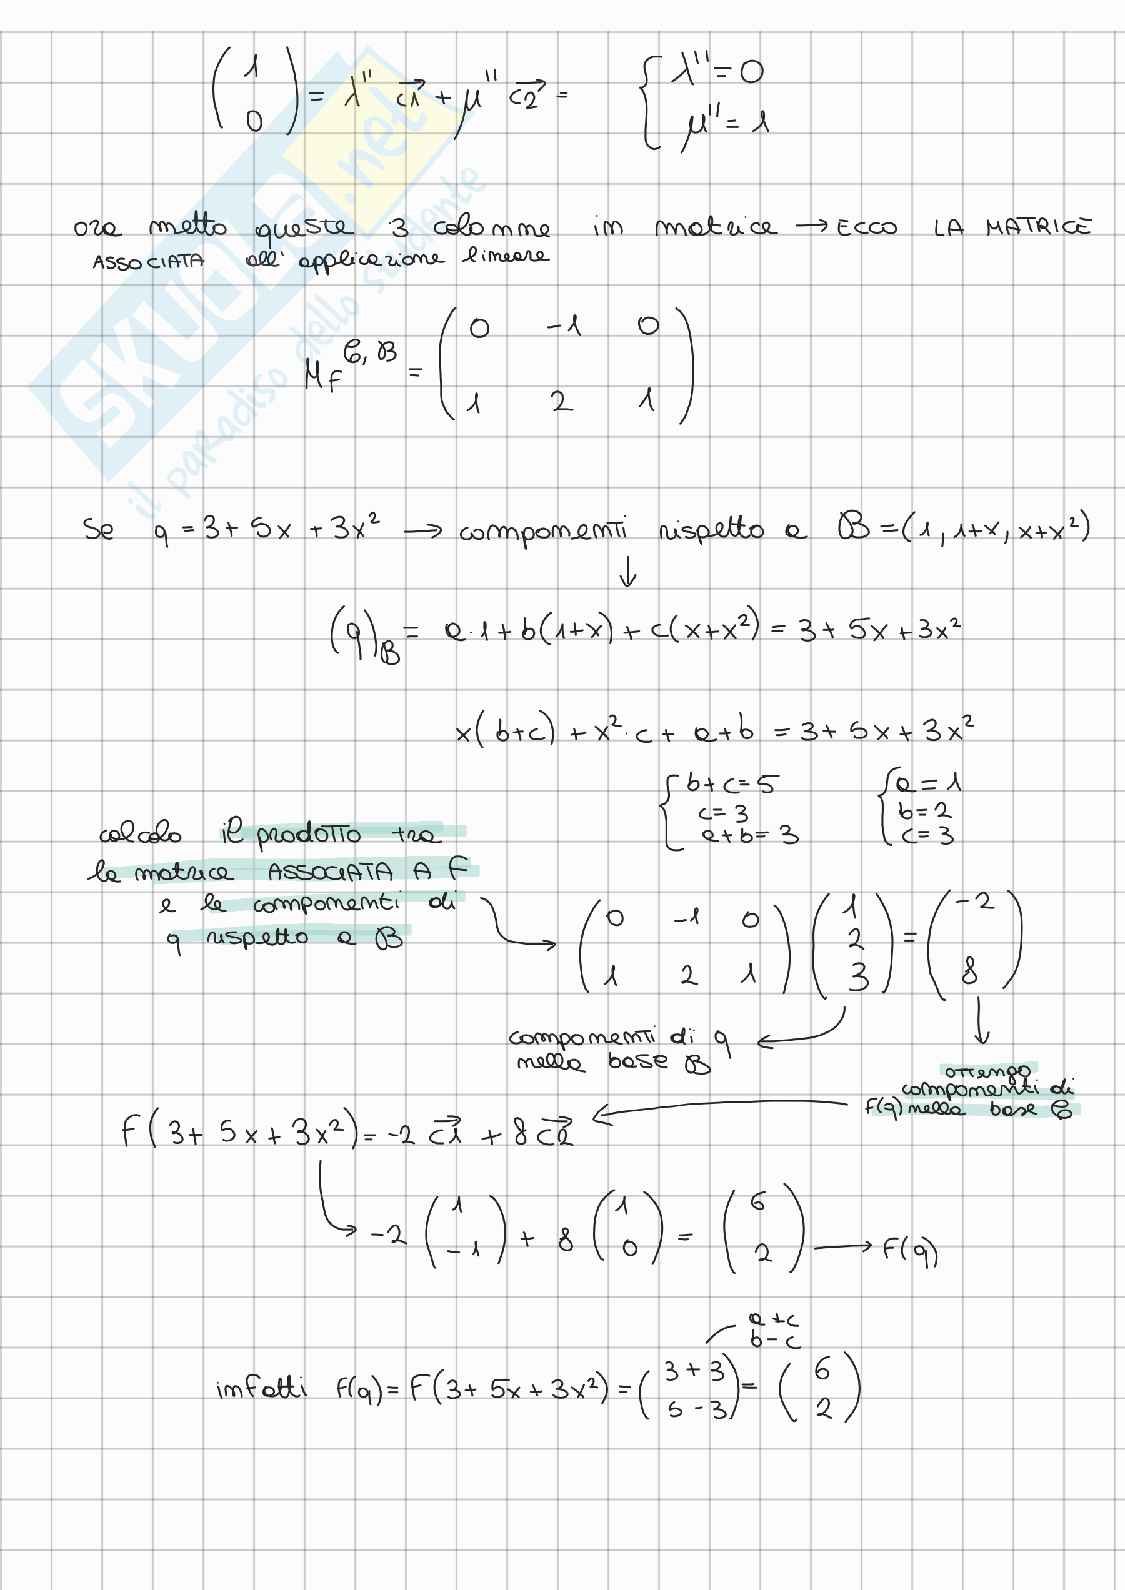 (1 0) = λ'' c1 + μ'' c2 = { λ''=0 μ''=1
ora metto queste 3 colonne in matrice → ECCO LA MATRICE
ASSOCIATA all' applicazione lineare
M_F^{C,B} = (0 -1 0
1 2 1)
Se q = 3+ 5x + 3x² → componenti rispetto a B = (1, 1+x, x+x²)
↓
(q)_B = a·1 + b(1+x) + c(x+x²) = 3+ 5x + 3x²
x(b+c) + x²·c + a+b = 3+ 5x + 3x²
{ b+c=5 { a=1
c=3 b=2
a+b=3 c=3
calcolo il prodotto tra
la matrice ASSOCIATA A F
e le componenti di
q rispetto a B
(0 -1 0 (1 (-2
2 =
1 2 1) 3) 8)
componenti di q
nella base B
ottengo
componenti di
F(q) nella base C
F(3+ 5x + 3x²) = -2 c1 + 8 c2
-2 (1 -1) + 8 (1 0) = (6 2) → F(q)
a+c
b-c
infatti F(q) = F(3+ 5x + 3x²) = (3+3 5-3) = (6 2)
SKUOLA.net
il paradiso dello studente